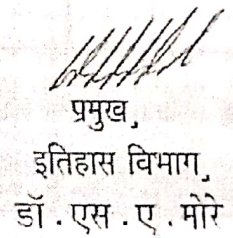 प्रमुख,
इतिहास विभाग,
डॉ . एस . ए . मोरे